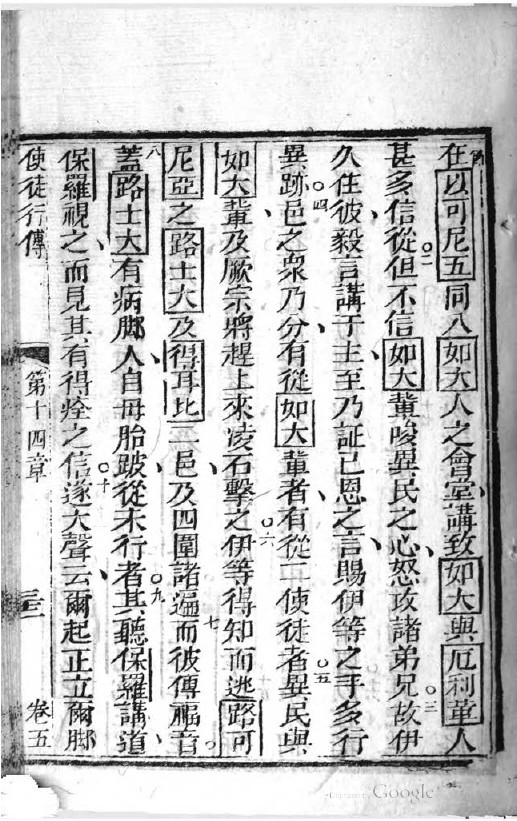 節在以可尼五同入如大人之會堂、講致如大與厄利革人
甚多信從○二但不信如大輩唆異民之心、怒攻諸弟兄○三故伊
久住彼、毅言講于主、至乃証己恩之言、賜伊等之手多行
異跡○四邑之衆乃分、有從如大輩者、有從二使徒者○五異民與
如大輩、及厥宗將趕上來凌石擊之○六伊等得知而逃路可
尼亞之路士大、及得耳比二邑、及四圍諸遍七而彼傳福音○
八蓋路士大有病脚人、自母胎跛、從未行者○九其聽保羅講道、
保羅視之、而見其有得痊之信○十遂大聲云、爾起正立爾脚
使徒行傳 第十四章 卷五
Digitized by Google